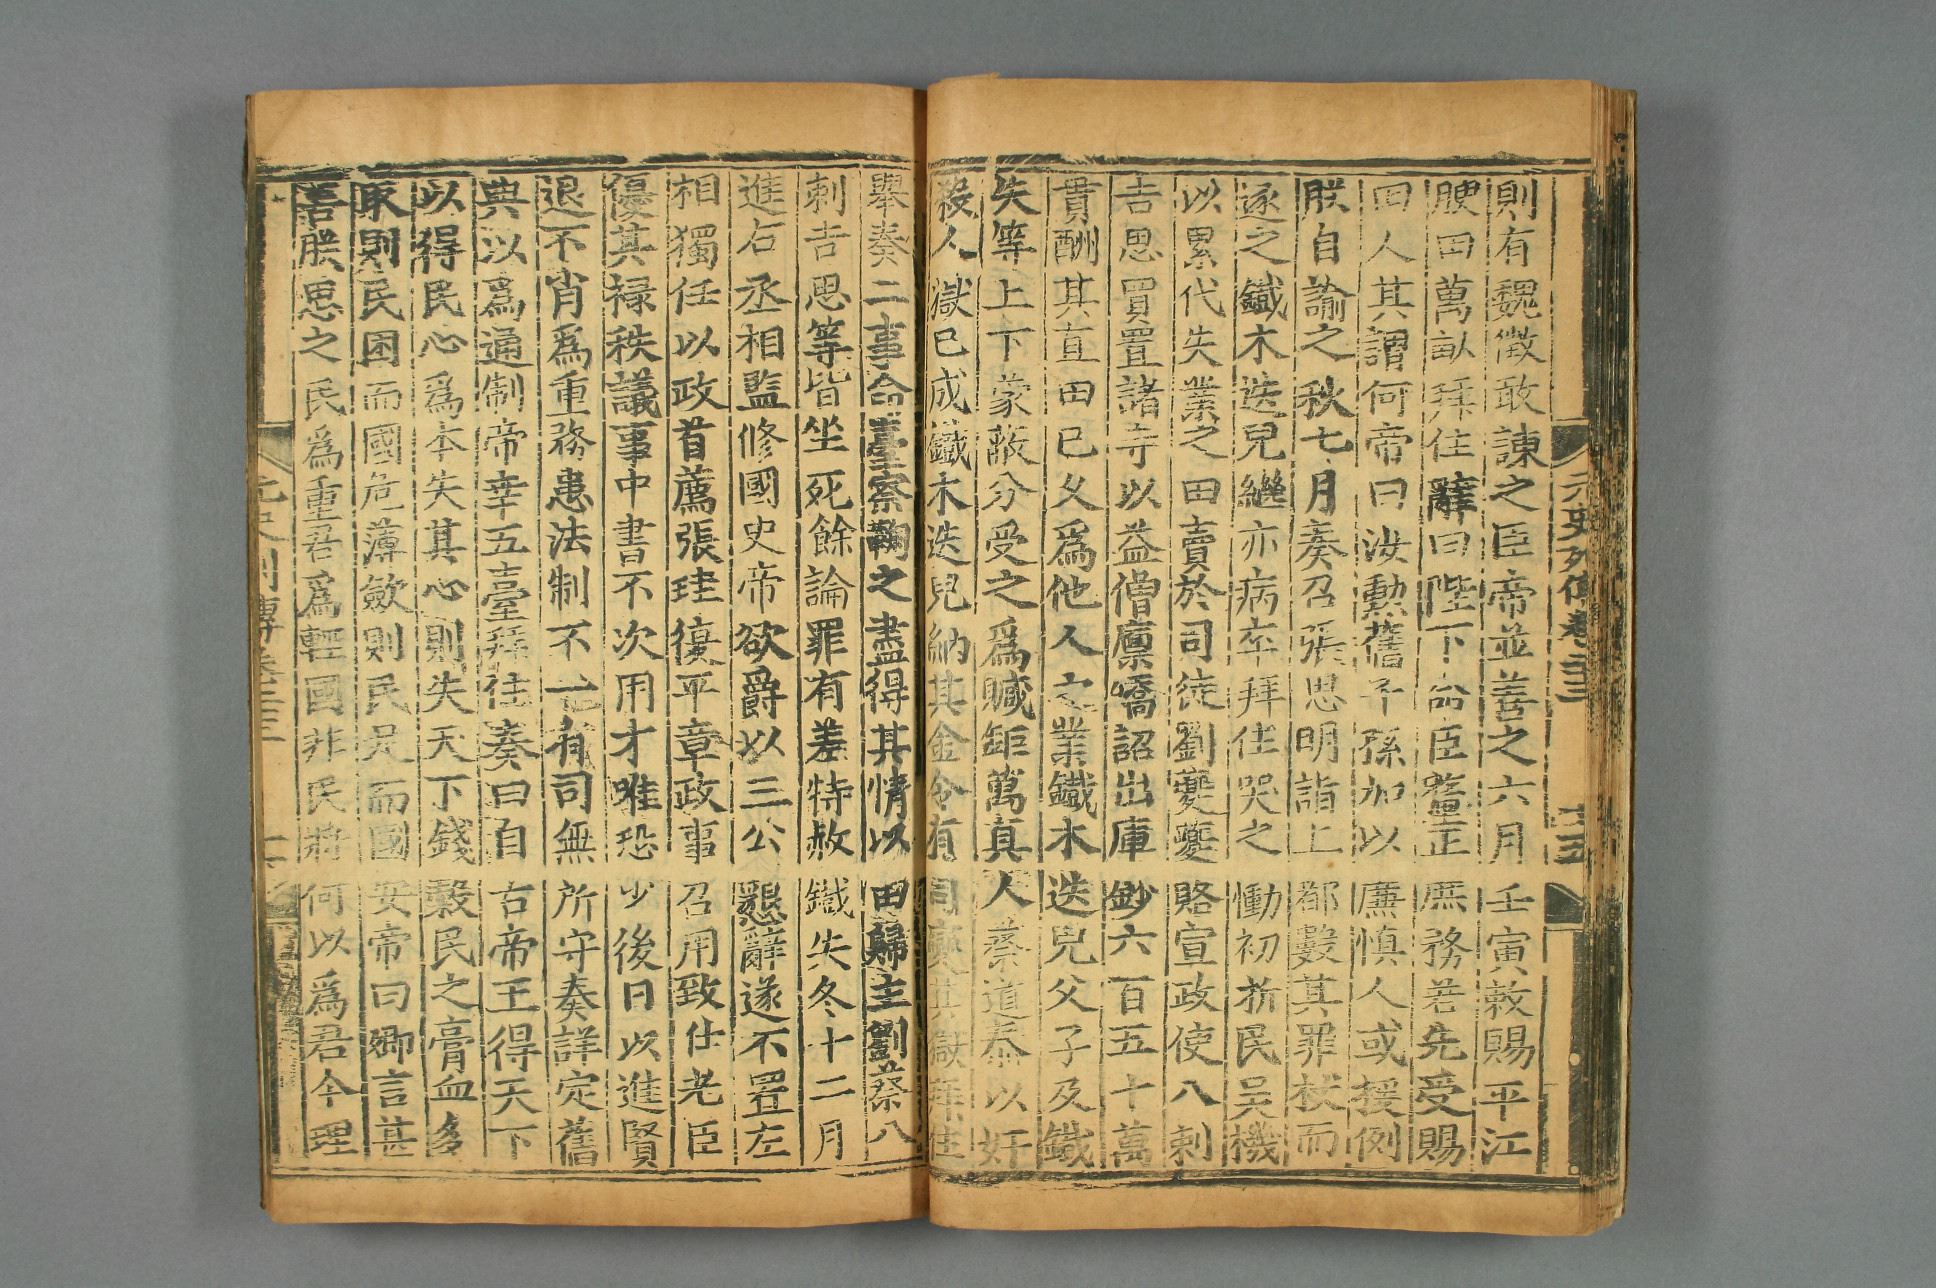 元史列傳卷二十三
十五
則有魏徵敢諫之臣帝並善之六月壬寅敕賜平江
腴田萬畝拜住辭曰陛下命臣釐正庶務若先受賜
田人其謂何帝曰汝勲舊子孫加以廉慎人或援例
朕自諭之秋七月奏召張思明詣上都數其罪杖而
逐之鐵木迭兒繼亦病卒拜住哭之慟初浙民吳機
以累代失業之田賣於司徒劉夔夔賂宣政使八剌
吉思買置諸寺以益僧廪矯詔出庫鈔六百五十萬
貫酬其直田已久爲他人之業鐵木迭兒父子及鐵
失等上下蒙蔽分受之爲贓鉅萬真人蔡道泰以奸
殺人獄已成鐵木迭兒納其金令有司變其獄拜住
舉奏二事命臺察鞫之盡得其情以田歸主劉蔡八
剌吉思等皆坐死餘論罪有差特赦鐵失冬十二月
進右丞相監修國史帝欲爵以三公懇辭遂不置左
相獨任以政首薦張珪復平章政事召用致仕老臣
優其禄秩議事中書不次用才唯恐少後日以進賢
退不肖爲重務患法制不一有司無所守奏詳定舊
典以爲通制帝幸五臺拜住奏曰自古帝王得天下
以得民心爲本失其心則失天下錢穀民之膏血多
取則民困而國危薄斂則民足而國安帝曰卿言甚
善朕思之民爲重君爲輕國非民將何以爲君今理
元史列傳卷二十三